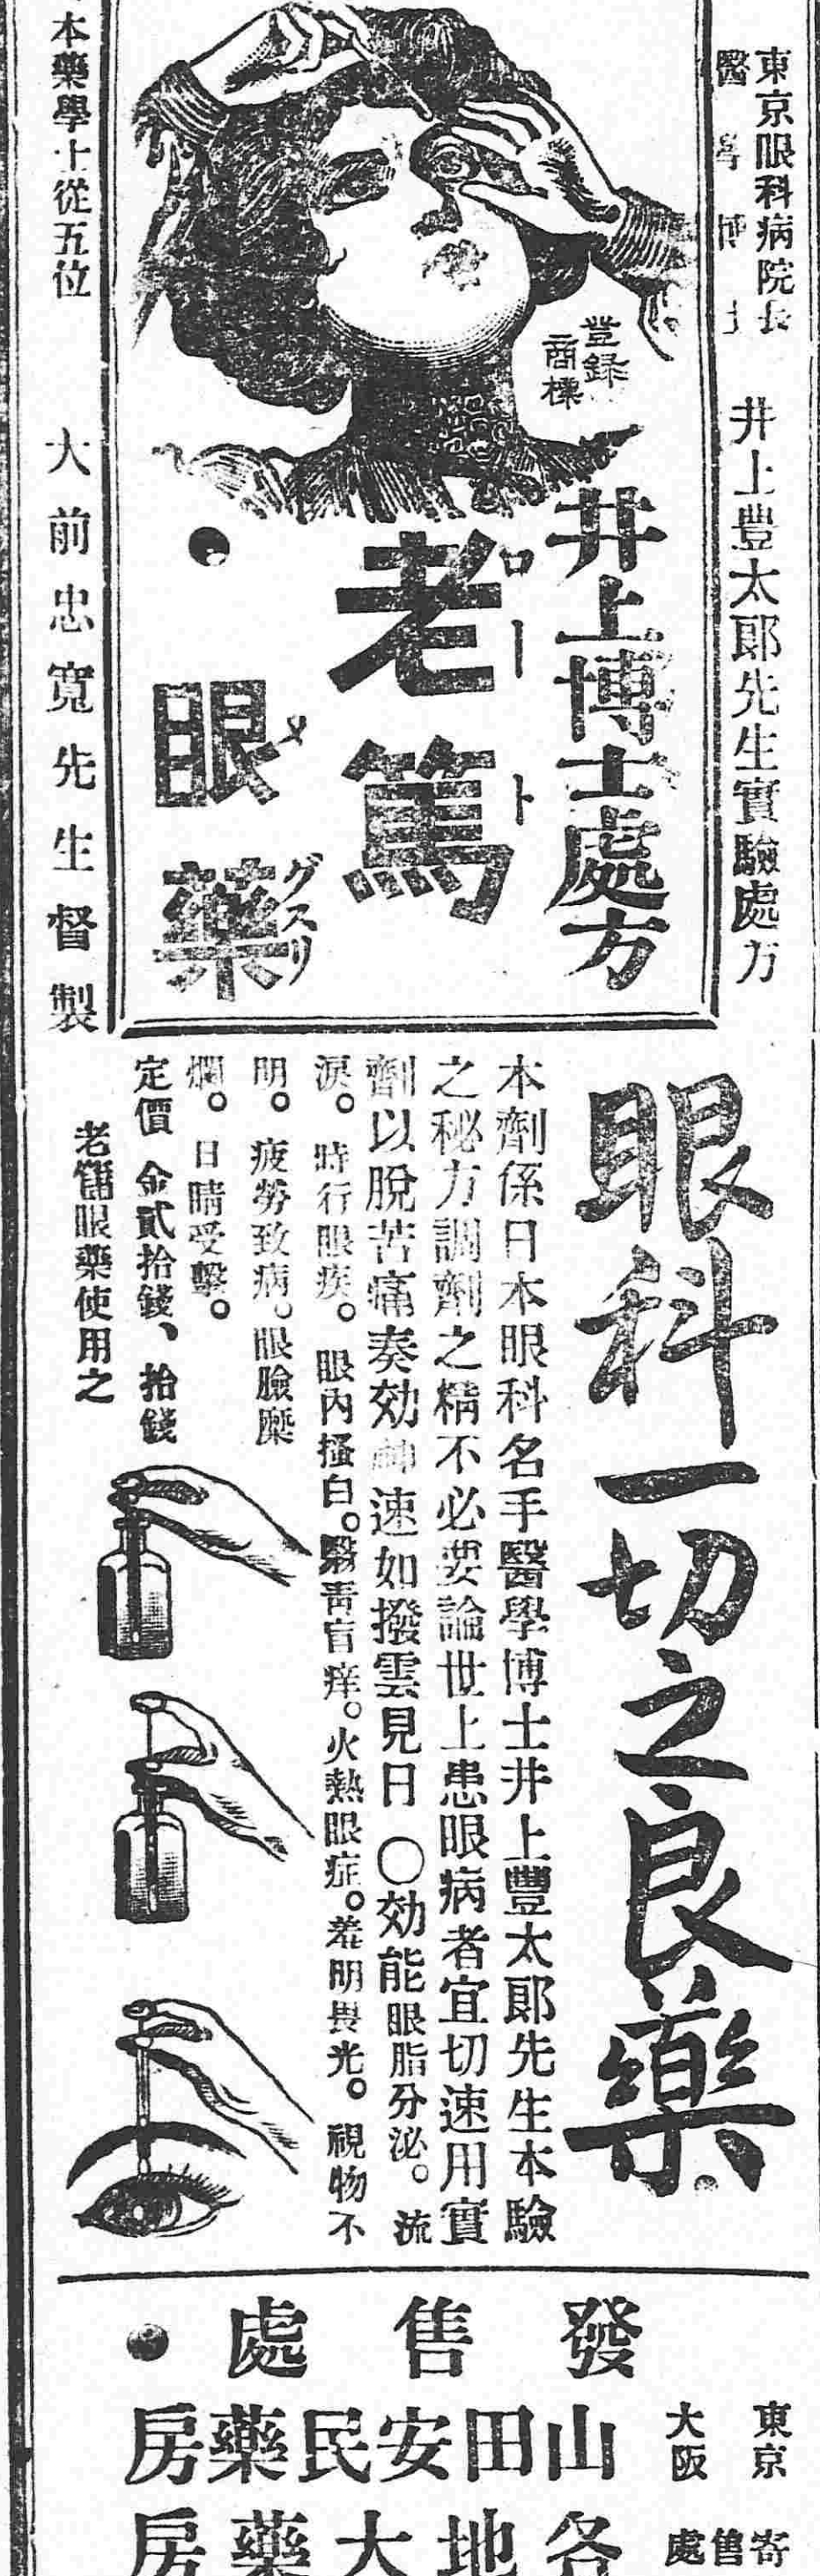 東京眼科病院長
醫學博士
井上豐太郎先生實驗處方
登錄
商標
井上博士處方
老篤
ロート
眼藥
メグスリ
本藥學士從五位
大前忠寬先生督製
眼科一切之良藥
本劑係日本眼科名手醫學博士井上豐太郎先生本驗
之秘方調劑之精不必要論世上患眼病者宜切速用實
劑以脫苦痛奏効神速如撥雲見日〇効能眼脂分泌。流
淚。時行眼疾。眼內搔白。翳靑盲痒。火熱眼症。羞明畏光。視物不
明。疲勞致病。眼瞼糜
爛。日晴受擊。
定價 金貳拾錢、拾錢
老篤眼藥使用之
發售處
東京
大阪
山田安民藥房
寄售處
各地大藥房